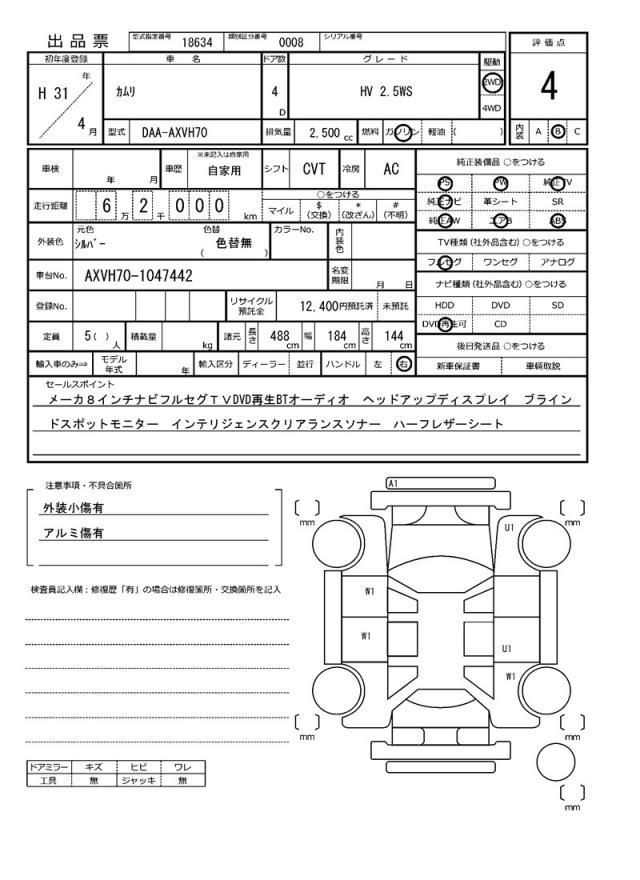 出品票
型式指定番号 18634 類別区分番号 0008 シリアル番号
評価点
初年度登録 車名 ドア数 グレード 駆動
H 31 年 4 月
カムリ
4 D
HV 2.5WS
2WD
4WD
4
型式 DAA-AXVH70 排気量 2,500 cc 燃料 ガソリン 軽油 ( )
内装 A B C
車検 年 月 車歴 ※未記入は自家用 自家用 シフト CVT 冷房 AC
純正装備品 ○をつける
PS PW 純正TV
純正ナビ 革シート SR
純正AW エアB ABS
走行距離 6 万 2 千 0 0 0 km
○をつける
マイル $ (交換) * (改ざん) # (不明)
外装色 元色 シルバー 色替 ( 色替無 ) カラーNo. 内装色
TV種類 (社外品含む) ○をつける
フルセグ ワンセグ アナログ
車台No. AXVH70-1047442 名変期限 月 日
ナビ種類 (社外品含む) ○をつける
HDD DVD SD
DVD再生可 CD
登録No. リサイクル預託金 12,400円預託済 未預託
定員 5( ) 人 積載量 kg 諸元 長さ 488 cm 幅 184 cm 高さ 144 cm
後日発送品 ○をつける
新車保証書 車輌取説
輸入車のみ⇒ モデル年式 年 輸入区分 ディーラー 並行 ハンドル 左 右
セールスポイント
メーカ8インチナビフルセグTVDVD再生BTオーディオ ヘッドアップディスプレイ ブライン
ドスポットモニター インテリジェンスクリアランスソナー ハーフレザーシート
注意事項・不具合箇所
外装小傷有
アルミ傷有
検査員記入欄：修復歴「有」の場合は修復箇所・交換箇所を記入
A1
mm
mm
U1
W1
W1
U1
W1
mm
mm
mm
ドアミラー キズ ヒビ ワレ
工具 無 ジャッキ 無